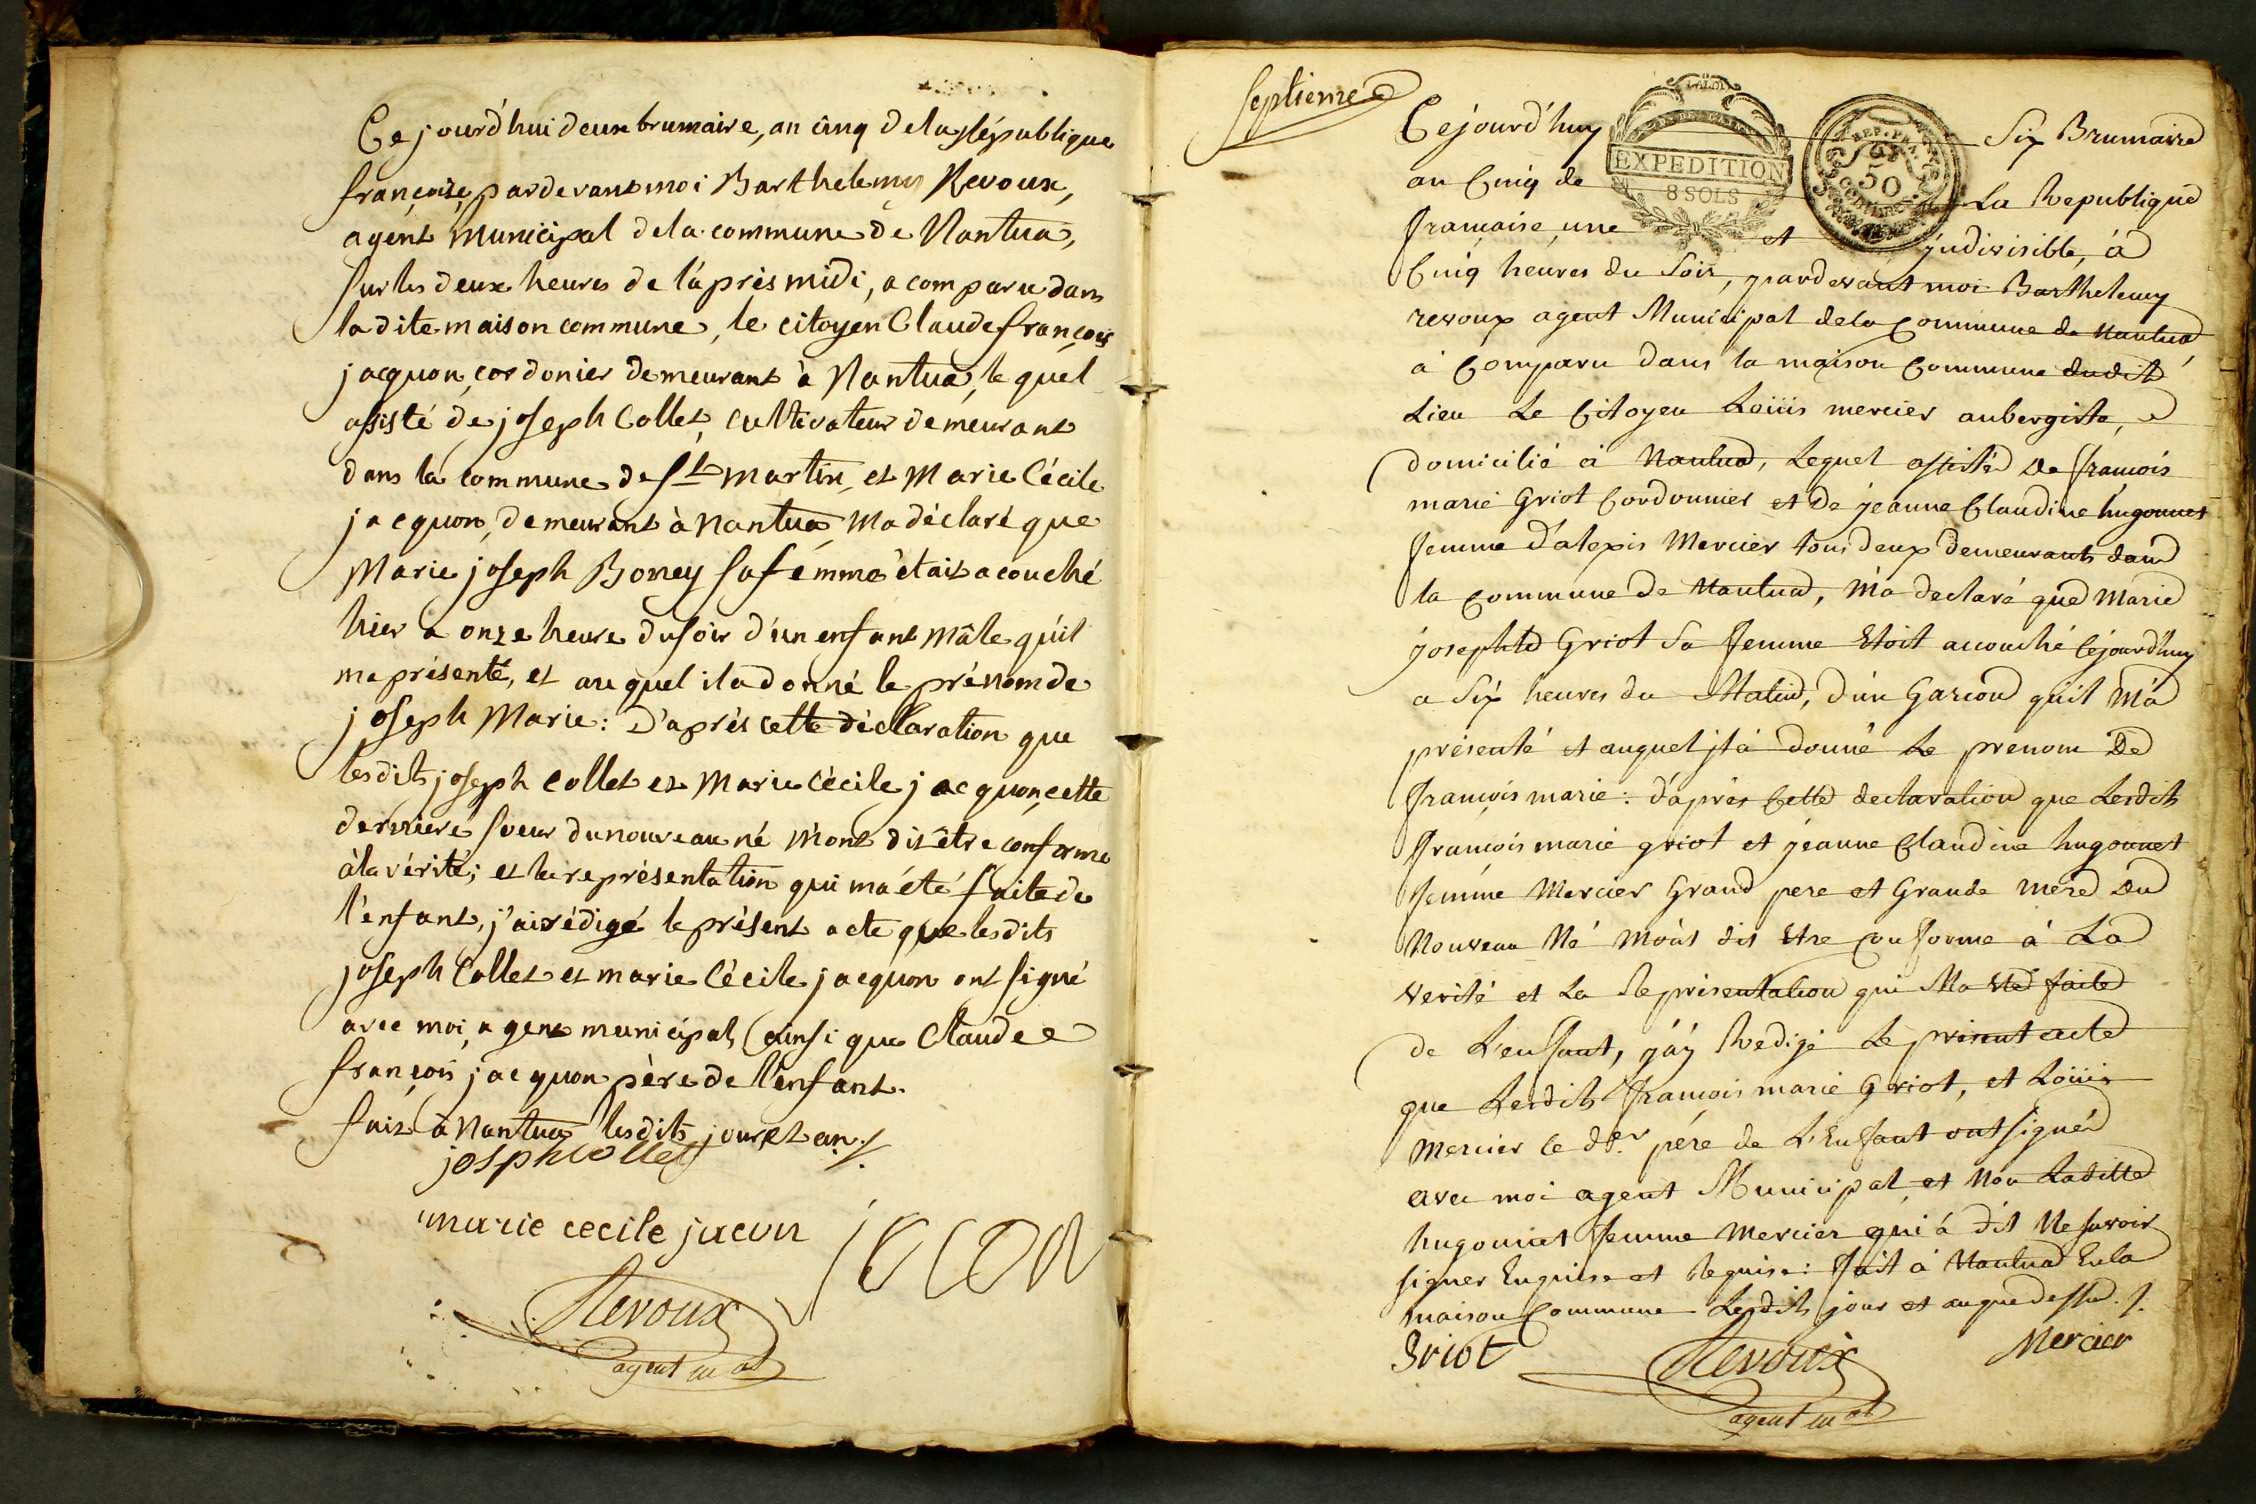 Ce jourd'hui deux brumaire, an cinq de la République
françoise, pardevant moi Barthelemy Revoux,
agent municipal de la commune de Nantua,
sur les deux heures de l'après midi, a comparu dans
la dite maison commune, le citoyen Claude françois
jacquon, cordonier demeurant à Nantua, le quel
assisté de joseph Collet, cultivateur demeurant
dans la commune de St martin, et Marie Cécile
jacquon, demeurant à Nantua, m'a déclaré que
Marie joseph Boney sa femme était acouché
hier a onze heure du soir d'un enfant mâle qu'il
ma présenté, et au quel il a donné le prénom de
joseph Marie: D'après cette déclaration que
lesdits joseph Collet et Marie Cécile jacquon, cette
dernière soeur du nouveau né m'ont dit être conforme
à la vérité; et la représentation qui m'a été faite de
l'enfant, j'ai rédigé le présent acte que lesdits
joseph Collet et marie Cécile jacquon ont signé
avec moi, agent municipal, ainsi que Claude
françois jacquon père de l'enfant.
fait à Nantua lesdits jour et an ./.
josph collet
marie cecile jacon
jacon
Revoux
agent mal
Septieme
LA LOI
EXPEDITION
8 SOLS
REP. FRA.
50
Cejourd'huy Six Brumaire
an Cinq de La Republique
française, une et jndivisible, à
Cinq heures du Soir, pardevant moi Barthelemy
revoux agent Municipal dela Commune de Nantua
à Comparu dans la maison Commune dudit
Lieu Le Citoyen Loüis mercier aubergiste,
domicilié à Nantua, Lequel assisté de françois
marie Griot Cordonnier et de jeanne Claudine hugonnet
femme d'alexis Mercier tous deux demeurants dans
la Commune de Nantua, m'a declaré que Marie
josephte Griot Sa femme Etoit accouché Cejourd'huy
a Six heures du Matin, d'un Garcon qu'il m'a
présenté et auquel jl a donné Le prenom De
françois marie: d'après Cette declaration que Lesdits
françois marie griot et jeanne Claudine hugonnet
femme Mercier Grand pere et Grande mere du
Nouveau Né m'ont dit Etre Conforme à La
verité et La Représentation qui M'a Eté faite
de L'enfant, j'ay Redigé Le présent acte
que Lesdits françois marie Griot, et Loüis
Mercier Ce der. père de L'Enfant ont signé
avec moi agent Municipal, et Non Laditte
hugonnet femme Mercier qui à dit Ne savoir
signer Enquise et Requise: fait à Nantua En la
maison Commune Lesdits jour et an que dessus ./.
Griot
Revoux
agent mal
Mercier